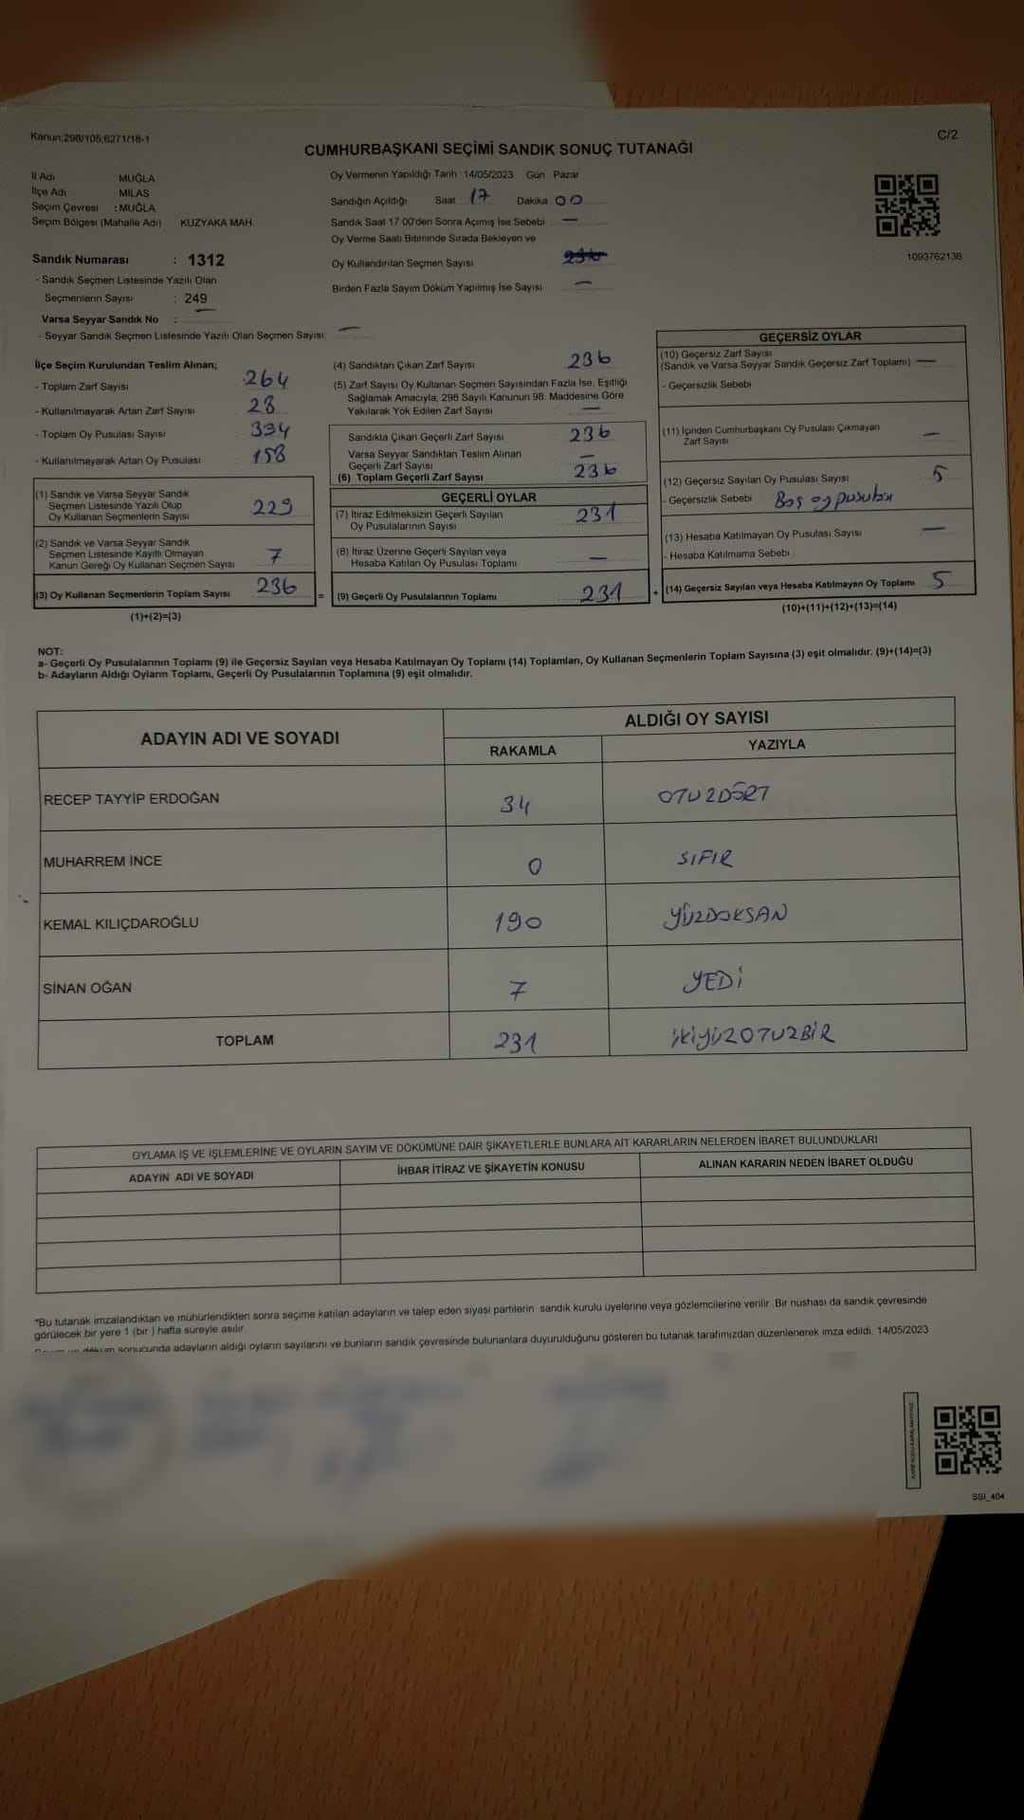 Kanun:298/105;6271/18-1
C/2
CUMHURBAŞKANI SEÇİMİ SANDIK SONUÇ TUTANAĞI
İl Adı MUĞLA
İlçe Adı MİLAS
Seçim Çevresi : MUĞLA
Seçim Bölgesi (Mahalle Adı) KUZYAKA MAH.
Sandık Numarası : 1312
- Sandık Seçmen Listesinde Yazılı Olan
Seçmenlerin Sayısı : 249
Varsa Seyyar Sandık No : —
- Seyyar Sandık Seçmen Listesinde Yazılı Olan Seçmen Sayısı: —
Oy Vermenin Yapıldığı Tarih : 14/05/2023 Gün Pazar
Sandığın Açıldığı Saat 17 Dakika 00
Sandık Saat 17:00'den Sonra Açımış İse Sebebi —
Oy Verme Saati Bitiminde Sırada Bekleyen ve
Oy Kullandırılan Seçmen Sayısı
Birden Fazla Sayım Döküm Yapılmış İse Sayısı —
1093762138
İlçe Seçim Kurulundan Teslim Alınan;
- Toplam Zarf Sayısı 264
- Kullanılmayarak Artan Zarf Sayısı 28
- Toplam Oy Pusulası Sayısı 394
- Kullanılmayarak Artan Oy Pusulası 158
(1) Sandık ve Varsa Seyyar Sandık
Seçmen Listesinde Yazılı Olup
Oy Kullanan Seçmenlerin Sayısı 229
(2) Sandık ve Varsa Seyyar Sandık
Seçmen Listesinde Kayıtlı Olmayan
Kanun Gereği Oy Kullanan Seçmen Sayısı 7
(3) Oy Kullanan Seçmenlerin Toplam Sayısı 236 =
(1)+(2)=(3)
(4) Sandıktan Çıkan Zarf Sayısı 236
(5) Zarf Sayısı Oy Kullanan Seçmen Sayısından Fazla İse, Eşitliği
Sağlamak Amacıyla, 298 Sayılı Kanunun 98. Maddesine Göre
Yakılarak Yok Edilen Zarf Sayısı —
Sandıkta Çıkan Geçerli Zarf Sayısı 236
Varsa Seyyar Sandıktan Teslim Alınan
Geçerli Zarf Sayısı —
(6) Toplam Geçerli Zarf Sayısı 236
GEÇERLİ OYLAR
(7) İtiraz Edilmeksizin Geçerli Sayılan
Oy Pusulalarının Sayısı 231
(8) İtiraz Üzerine Geçerli Sayılan veya
Hesaba Katılan Oy Pusulası Toplamı —
(9) Geçerli Oy Pusulalarının Toplamı 231 +
GEÇERSİZ OYLAR
(10) Geçersiz Zarf Sayısı
(Sandık ve Varsa Seyyar Sandık Geçersiz Zarf Toplamı) —
- Geçersizlik Sebebi
(11) İçinden Cumhurbaşkanı Oy Pusulası Çıkmayan
Zarf Sayısı —
(12) Geçersiz Sayılan Oy Pusulası Sayısı 5
- Geçersizlik Sebebi Boş oy pusulası
(13) Hesaba Katılmayan Oy Pusulası Sayısı —
- Hesaba Katılmama Sebebi
(14) Geçersiz Sayılan veya Hesaba Katılmayan Oy Toplamı 5
(10)+(11)+(12)+(13)=(14)
NOT:
a- Geçerli Oy Pusulalarının Toplamı (9) ile Geçersiz Sayılan veya Hesaba Katılmayan Oy Toplamı (14) Toplamları, Oy Kullanan Seçmenlerin Toplam Sayısına (3) eşit olmalıdır. (9)+(14)=(3)
b- Adayların Aldığı Oyların Toplamı, Geçerli Oy Pusulalarının Toplamına (9) eşit olmalıdır.
ADAYIN ADI VE SOYADI
ALDIĞI OY SAYISI
RAKAMLA YAZIYLA
RECEP TAYYİP ERDOĞAN 34 OTUZDÖRT
MUHARREM İNCE 0 SIFIR
KEMAL KILIÇDAROĞLU 190 YÜZDOKSAN
SİNAN OĞAN 7 YEDİ
TOPLAM 231 İKİYÜZOTUZBİR
OYLAMA İŞ VE İŞLEMLERİNE VE OYLARIN SAYIM VE DÖKÜMÜNE DAİR ŞİKAYETLERLE BUNLARA AİT KARARLARIN NELERDEN İBARET BULUNDUKLARI
ADAYIN ADI VE SOYADI İHBAR İTİRAZ VE ŞİKAYETİN KONUSU ALINAN KARARIN NEDEN İBARET OLDUĞU
"Bu tutanak imzalandıktan ve mühürlendikten sonra seçime katılan adayların ve talep eden siyasi partilerin sandık kurulu üyelerine veya gözlemcilerine verilir. Bir nüshası da sandık çevresinde
görülecek bir yere 1 (bir ) hafta süreyle asılır.
sonucunda adayların aldığı oyların sayılarını ve bunların sandık çevresinde bulunanlara duyurulduğunu gösteren bu tutanak tarafımızdan düzenlenerek imza edildi. 14/05/2023
SSI_404